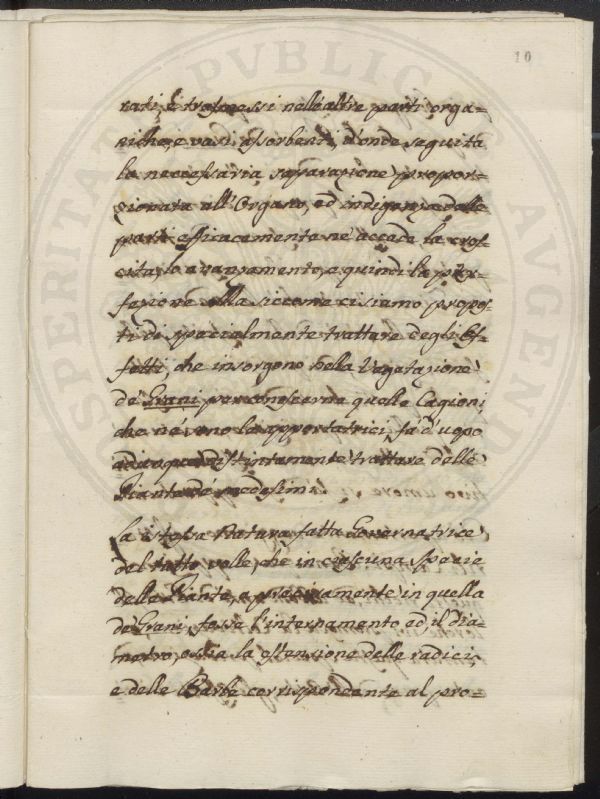 10
rati, e trasmessi nelle altre parti orga=
niche, e vasi assorbenti, d'onde seguita
la necessaria separazione propor=
zionata all'Organo, ed indigenza delle
parti efficacemente né accade la cres=
cita, lo avanzamento, e quindi la per=
fezione. Ma siccome ci siamo propos=
ti di specialmente trattare degli Ef=
fetti, che insorgono nella Vegetazione
dè Grani per conoscerne quelle Cagioni,
che né sono le apportatrici, fà d'uopo
adunque distintamente trattare delle
Piante dè medesimi.
La istessa Natura fatta Governatrice
del tutto volle, che in ciascuna specie
delle Piante, e precisamente in quella
dè Grani, fosse l'internamento ed il dia=
metro, ossia la estensione delle radici,
e delle Barbe corrispondente al pro=
PVBLIC
AVGENDO